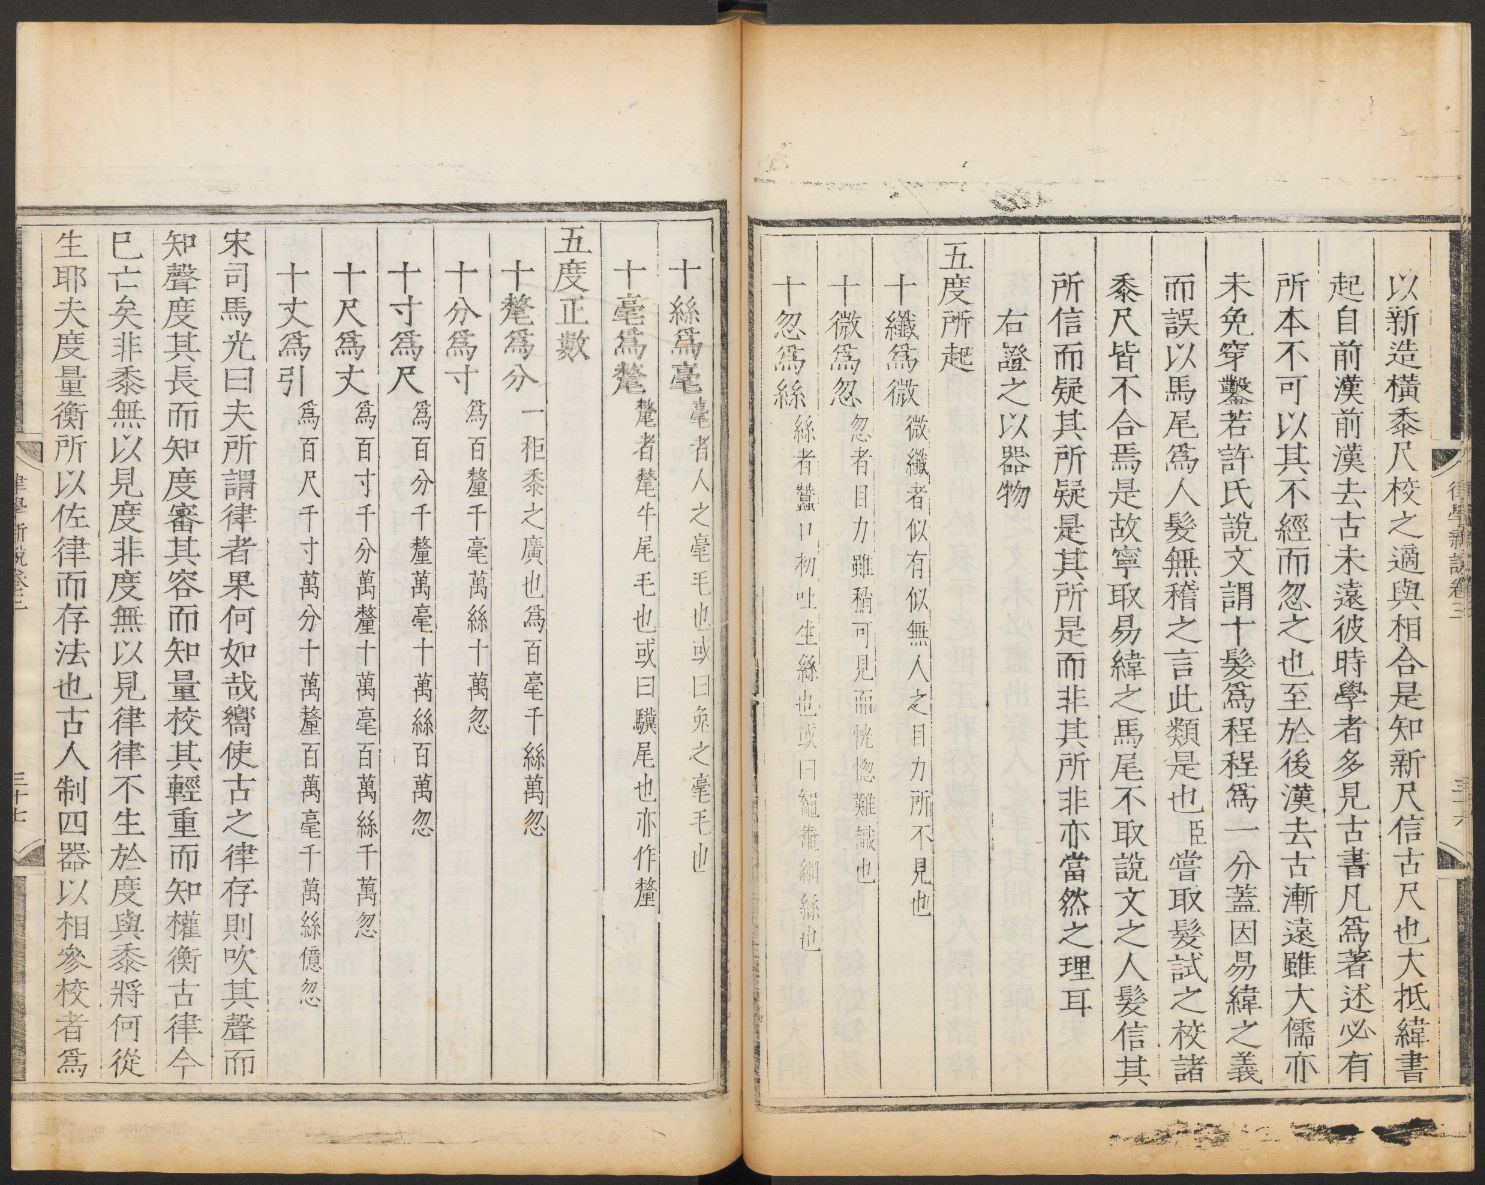 以新造橫黍尺校之適與相合是知新尺信古尺也大抵緯書
起自前漢前漢去古未遠彼時學者多見古書凡為著述必有
所本不可以其不經而忽之也至於後漢去古漸遠雖大儒亦
未免穿鑿若許氏說文謂十髮為程程為一分蓋因易緯之義
而誤以馬尾為人髮無稽之言此類是也臣嘗取髮試之校諸
黍尺皆不合焉是故寧取易緯之馬尾不取說文之人髮信其
所信而疑其所疑是其所是而非其所非亦當然之理耳
右證之以器物
五度所起
十纖為微微纖者似有似無人之目力所不見也
十微為忽忽者目力雖稍可見而恍惚難識也
十忽為絲絲者蠶口初吐生絲也或曰繩𪓰網絲也
律學新說卷三
三十六
十絲為毫毫者人之毫毛也或曰兔之毫毛也
十毫為氂氂者氂牛尾毛也或曰驥尾也亦作釐
五度正數
十氂為分一秬黍之廣也為百毫千絲萬忽
十分為寸為百釐千毫萬絲十萬忽
十寸為尺為百分千釐萬毫十萬絲百萬忽
十尺為丈為百寸千分萬釐十萬毫百萬絲千萬忽
十丈為引為百尺千寸萬分十萬釐百萬毫千萬絲億忽
宋司馬光曰夫所謂律者果何如哉嚮使古之律存則吹其聲而
知聲度其長而知度審其容而知量校其輕重而知權衡古律今
已亡矣非黍無以見度非度無以見律律不生於度與黍將何從
生耶夫度量衡所以佐律而存法也古人制四器以相參校者為
律學新說卷三
三十七